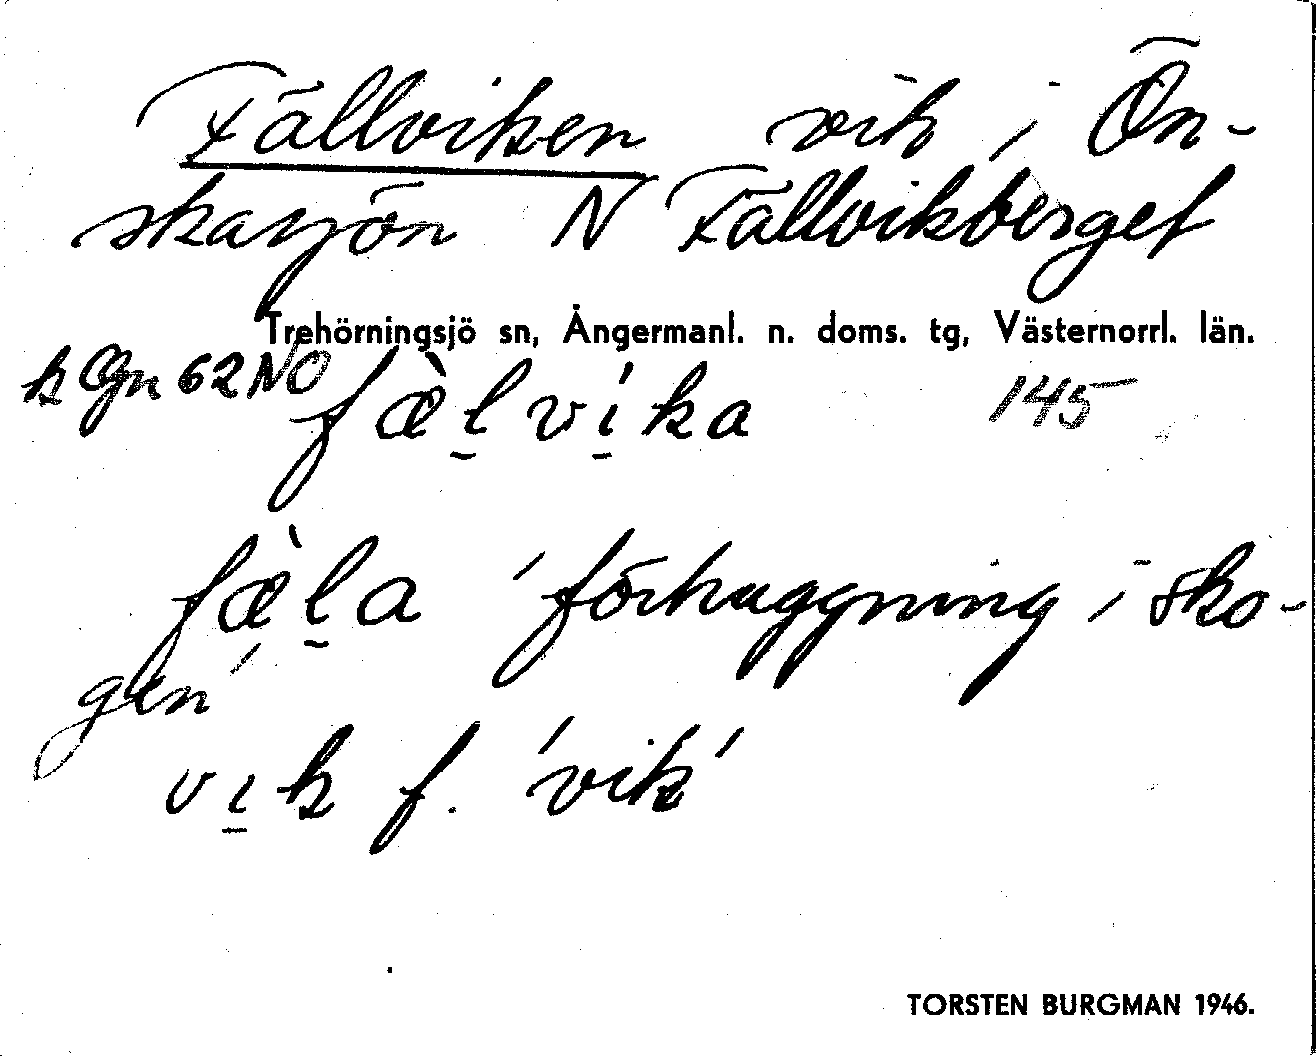 Fällviken vik i Ön-
skasjön N Fällvikberget
Trehörningsjö sn, Ångermanl. n. doms. tg, Västernorrl. län.
k Ögn 62 NO
fæ̀l̲ví̲ka 145
fæ̀l̲a 'förhuggning i sko-
gen'
vi̲k f. 'vik'
TORSTEN BURGMAN 1946.